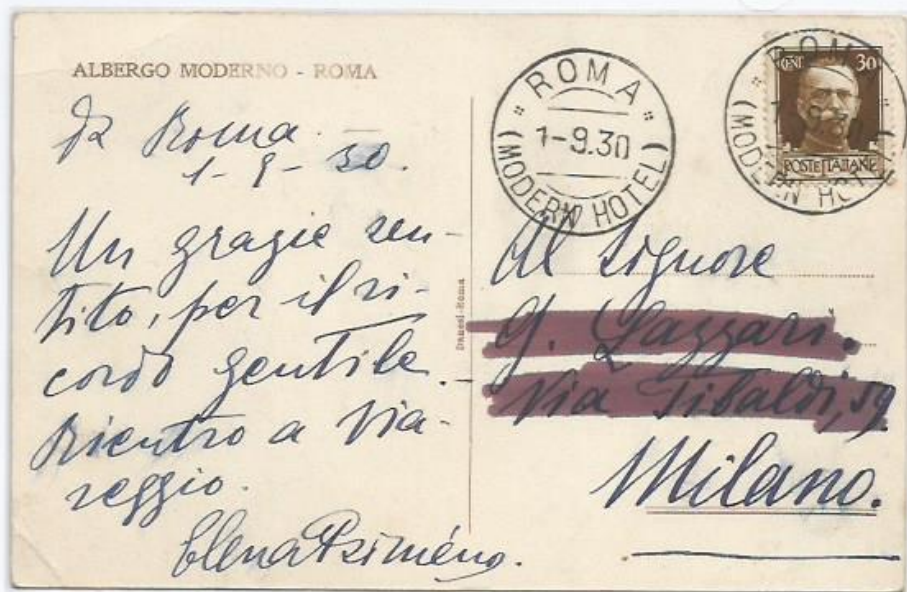 ALBERGO MODERNO - ROMA
da Roma.
1-9-30.
Un grazie sen-
tito, per il ri-
cordo gentile.
Rientro a Via-
reggio.
Elena
Danesi-Roma
ROMA
1-9.30
(MODERN HOTEL)
ROMA
(MODERN HOTEL)
CENT 30
POSTE ITALIANE
Al Signore
G. Lazzari.
Via Tibaldi, 59
Milano.